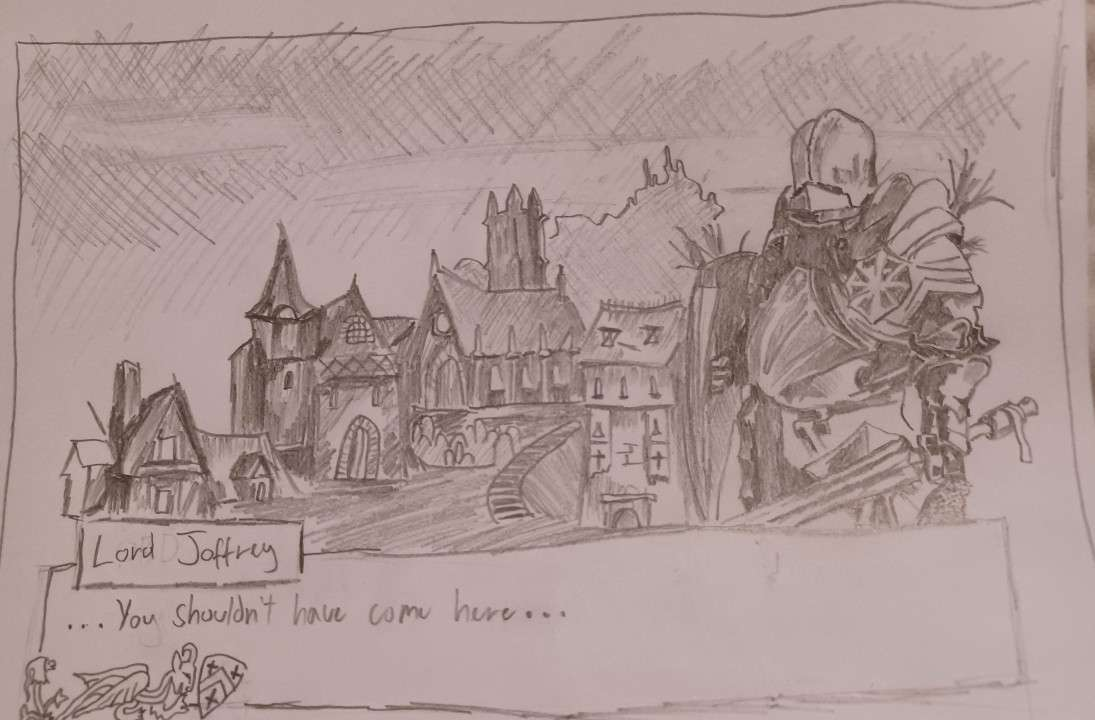 Lord Joffrey
...You shouldn't have come here...